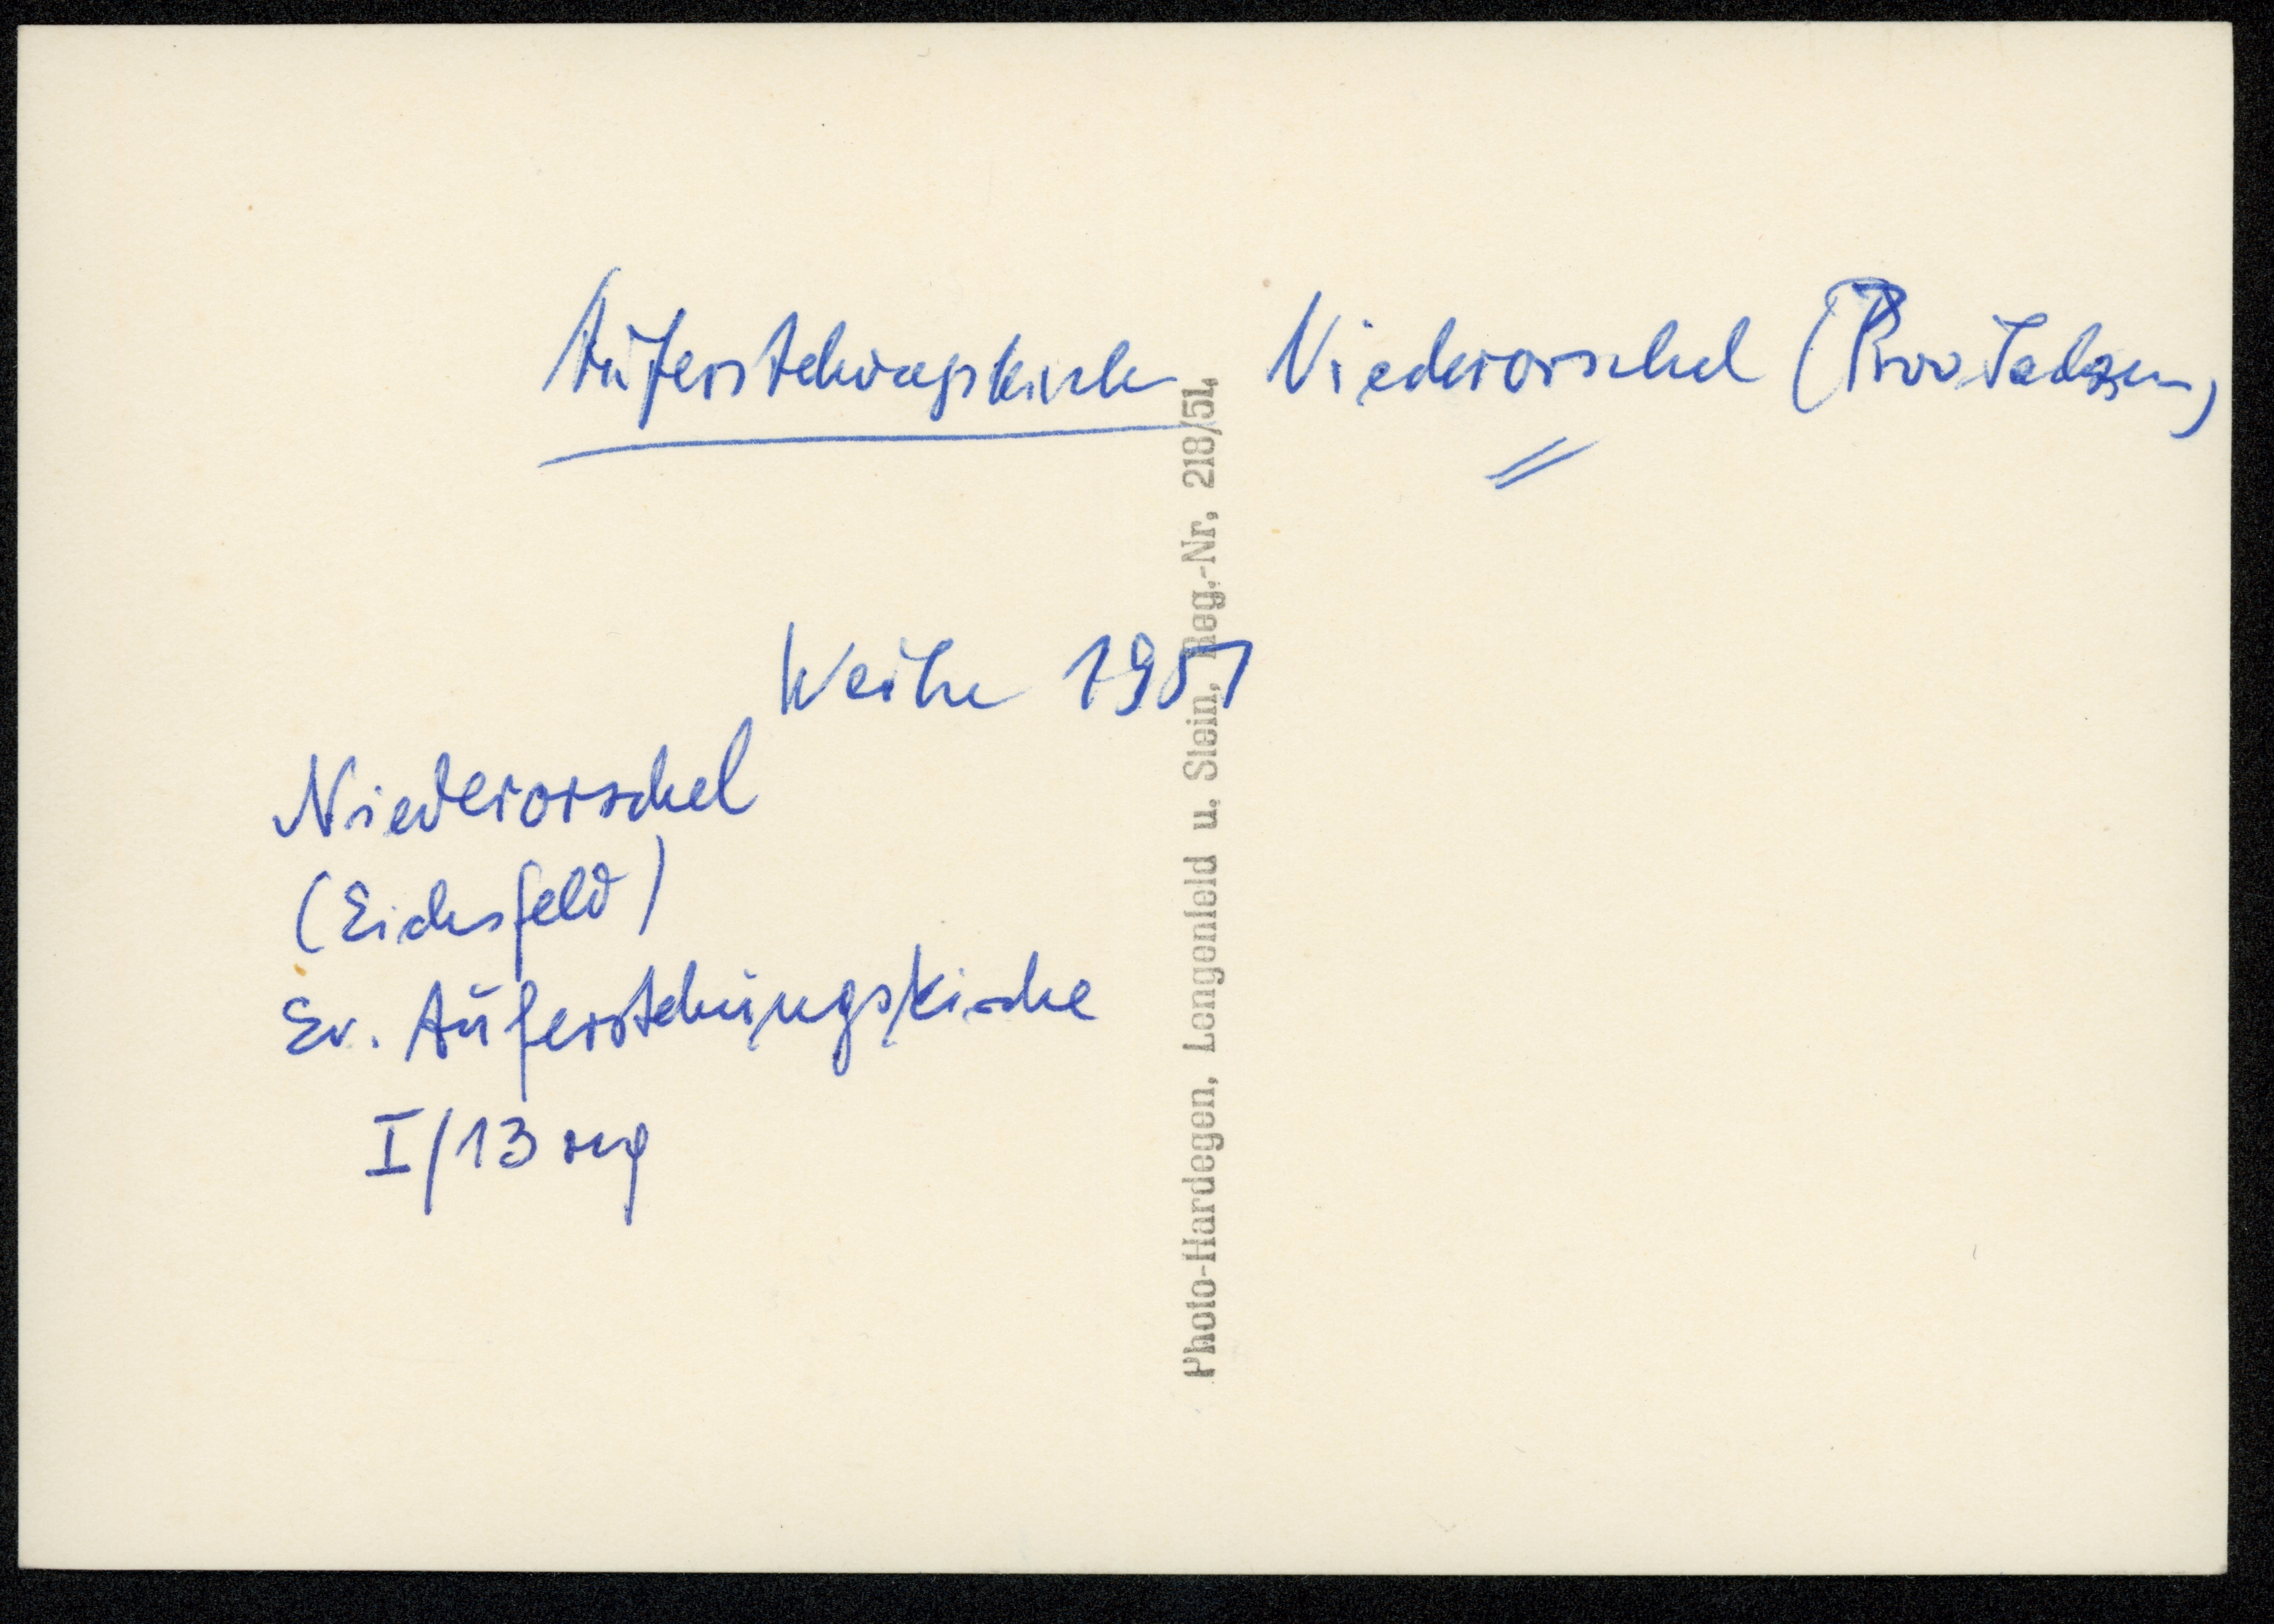 Auferstehungskirche Niederorschel (Prov Sachsen)
Weihe 1951
Niederorschel
(Eichsfeld)
Ev. Auferstehungskirche
I/13
Photo-Hardegen, Lengenfeld u. Stein, Reg.-Nr. 218/51.